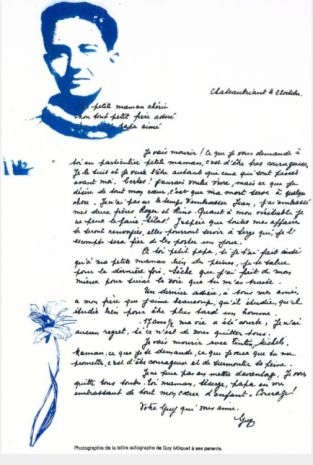 Chateaubriant le 22 octobre.
petite maman chérie
mon tout petit frère adoré
petit papa aimé
Je vais mourir ! Ce que je vous demande à
toi en particulier petite maman, c'est d'être très courageuse,
Je le suis et je veux l'être autant que ceux qui sont passés
avant moi. Certes ! j'aurais voulu vivre, mais ce que je
désire de tout mon cœur, c'est que ma mort serve à quelque
chose. Je n'ai pas eu le temps d'embrasser Jean, j'ai embrassé
mes deux frères Roger et Rino. Quant à mon véritable je
ne peux le faire, hélas ! J'espère que toutes mes affaires
te seront renvoyées, elles pourront servir à Serge qui, je l'
escompte sera fier de les porter un jour.
A toi petit papa, si je t'ai fait ainsi
qu'à ma petite maman bien des peines, je te salue
pour la dernière fois. Sache que j'ai fait de mon
mieux pour suivre la voie que tu m'as tracée.
Un dernier adieu, à tous mes amis,
à mon frère que j'aime beaucoup, qu'il étudie, qu'il
étudie bien pour être plus tard un homme.
17 ans ½ ma vie a été courte, je n'ai
aucun regret, si ce n'est de vous quitter tous.
Je vais mourir avec Tintin, Michels.
Maman, ce que je te demande, ce que je veux que tu me
promettes, c'est d'être courageuse et de surmonter ta peine.
Je ne peux pas en mettre davantage. Je vous
quitte tous toutes. Toi maman, Séserge, papa en vous
embrassant de tout mon cœur d'enfant. Courage !
Votre Guy qui vous aime.
Guy
Photographie de la lettre autographe de Guy Môquet à ses parents.